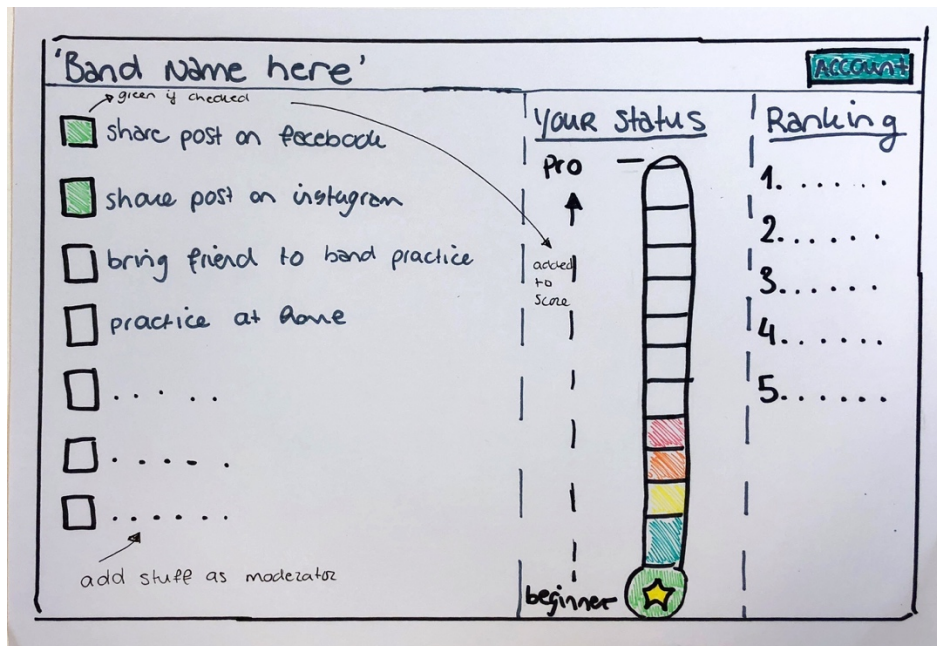 'Band Name here'
Account
green if checked
share post on facebook
share post on instagram
bring friend to band practice
practice at home
. . . . .
. . . . .
. . . . . .
add stuff as moderator
Your Status
Pro
added
to
score
beginner
Ranking
1. . . . . .
2. . . . . .
3. . . . . .
4. . . . . .
5. . . . . .